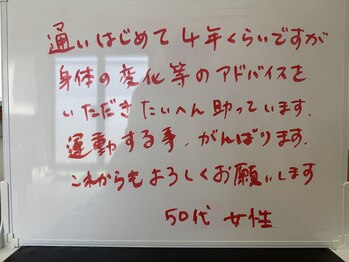 通いはじめて4年くらいですが
身体の変化等のアドバイスを
いただきたいへん助っています.
運動する事、がんばります.
これからもよろしくお願いします
50代 女性